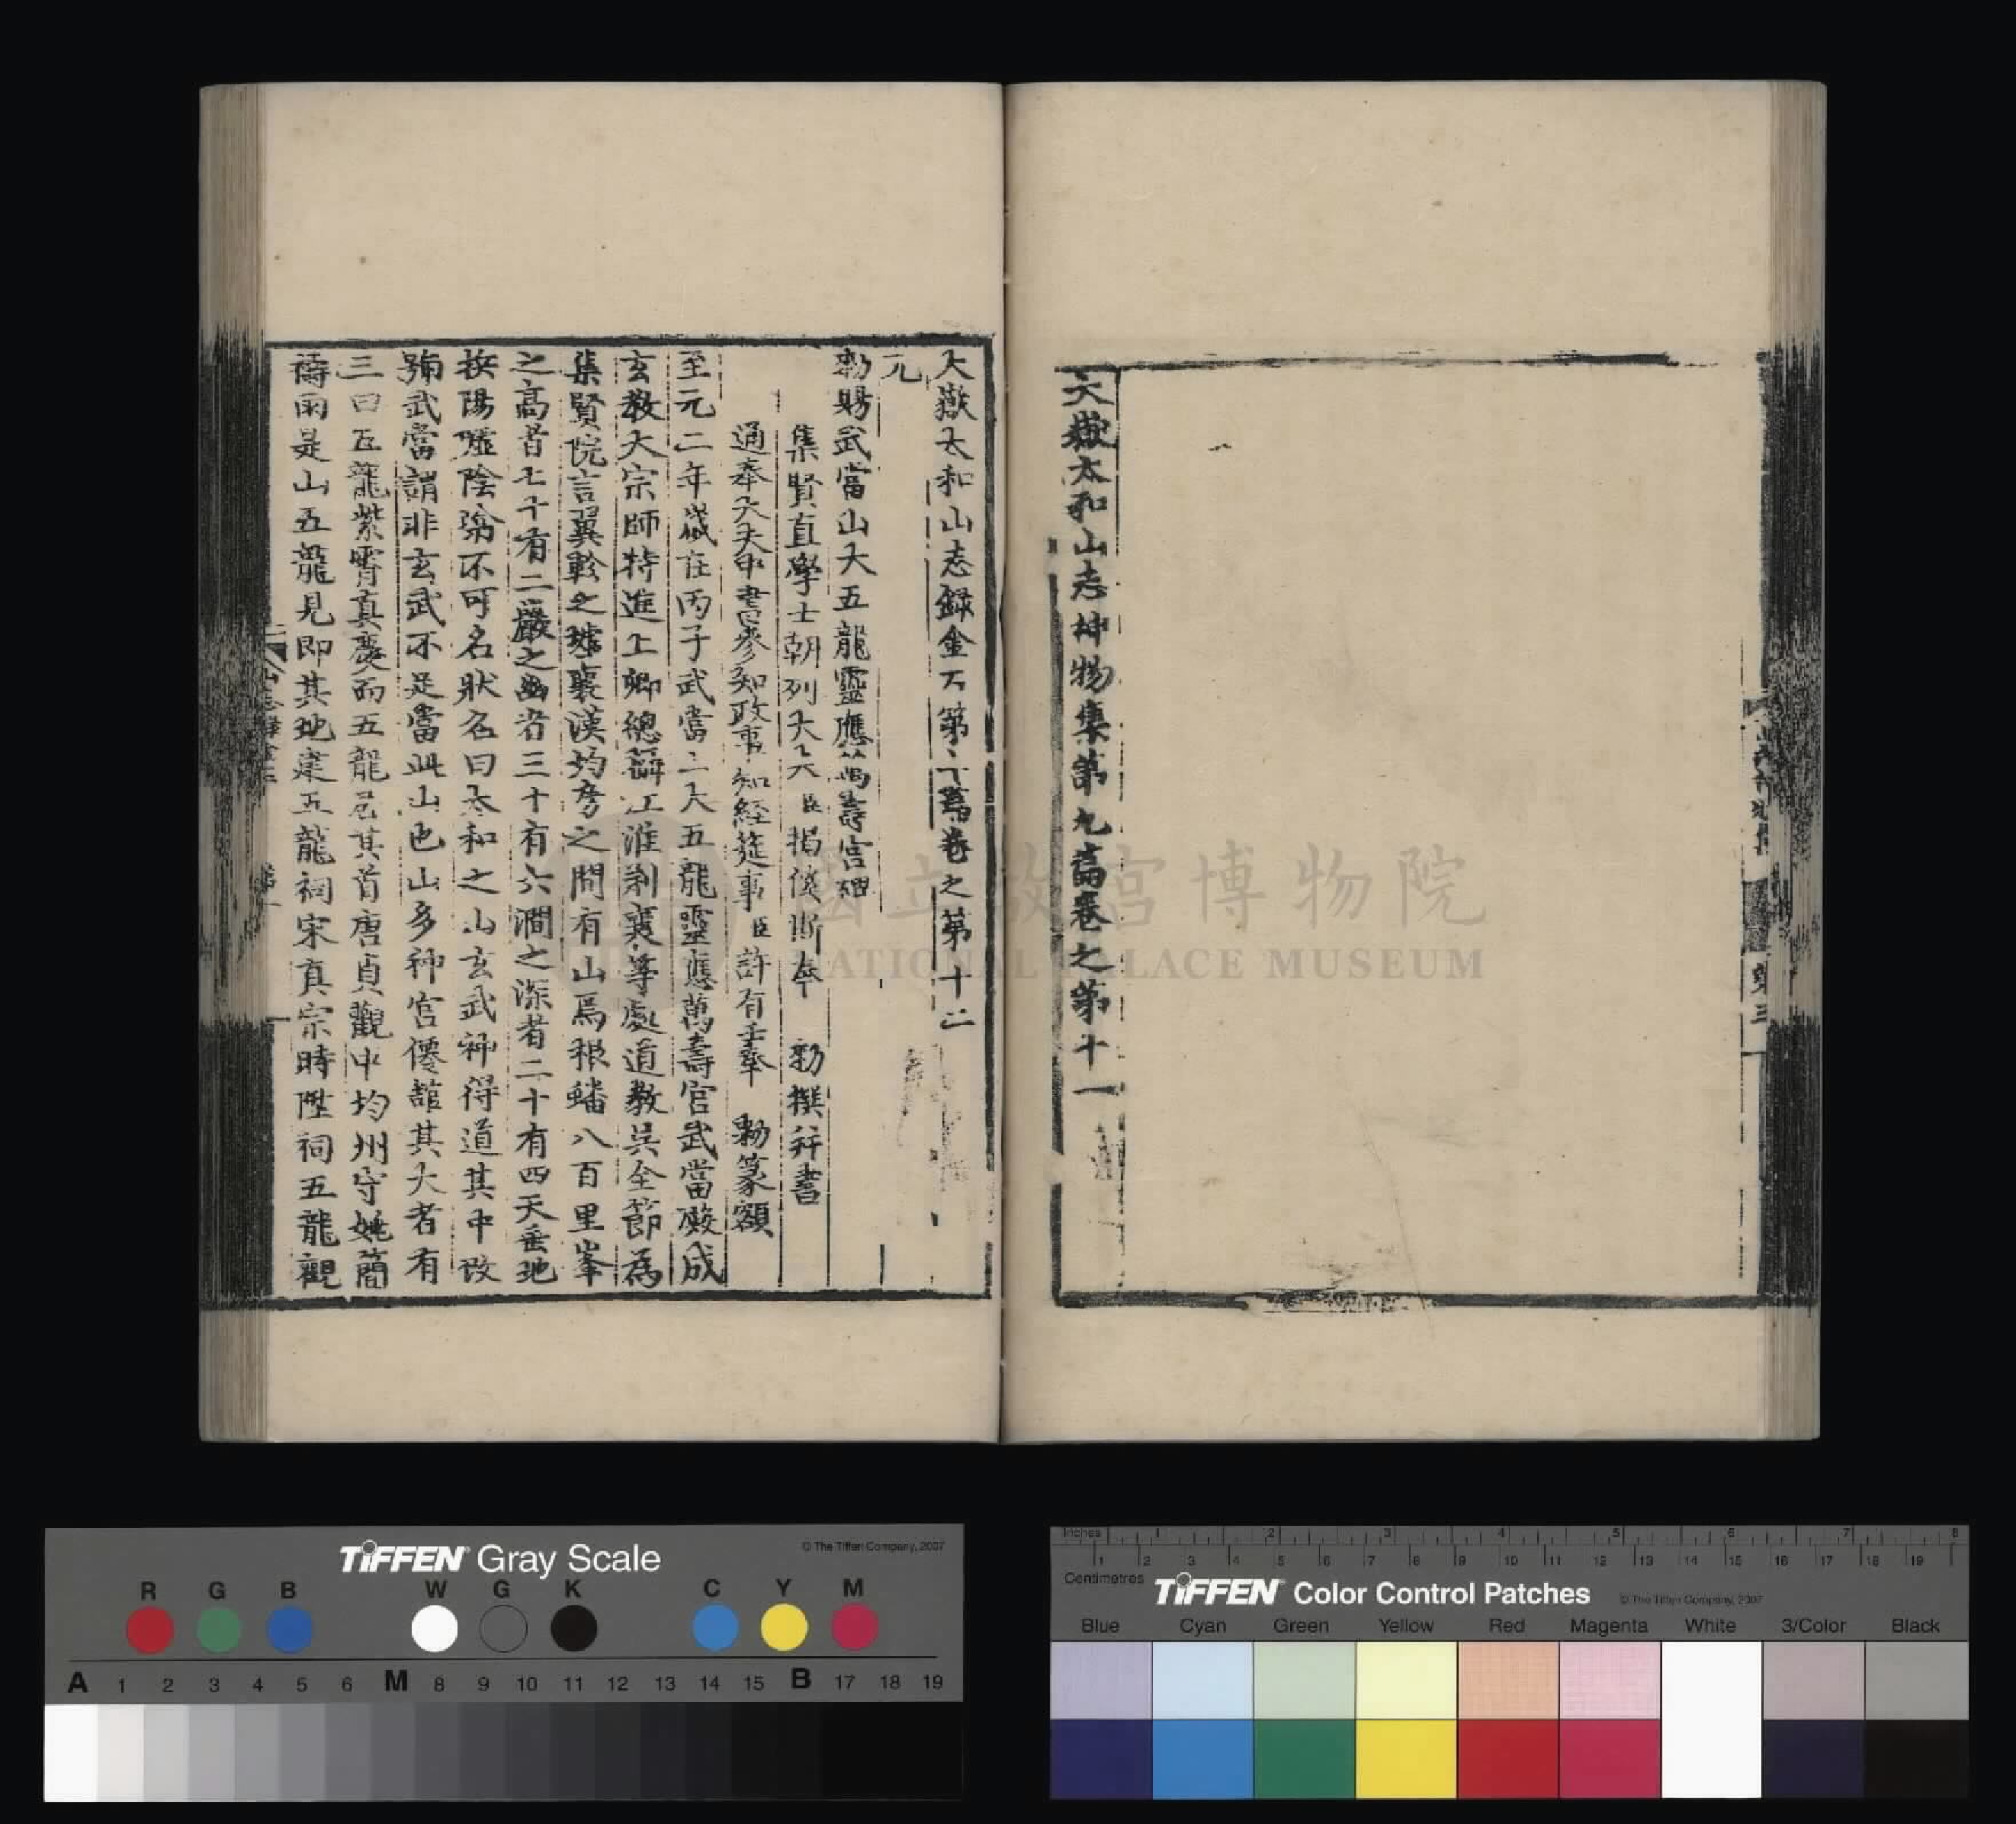 大嶽太和山志神物集第九篇卷之第十一
大嶽太和山志錄金石第十篇卷之第十二
元
勑賜武當山大五龍靈應萬壽宮碑
集賢直學士朝列大夫臣揭傒斯奉 勑撰并書
通奉大夫中書參知政事知經筵事臣許有壬奉 勑篆額
至元二年歲在丙子武當山大五龍靈應萬壽宮武當殿成
玄教大宗師特進上卿總攝江淮荆襄等處道教吳全節為
集賢院言翼軫之墟襄漢均房之間有山焉根蟠八百里峯
之高者七十有二巖之幽者三十有六澗之深者二十有四天垂地
挾陽噓陰翕不可名狀名曰太和之山玄武神得道其中改
號武當謂非玄武不足當此山也山多神宮僊館其大者有
三曰五龍紫霄真慶而五龍居其首唐貞觀中均州守姚簡
禱雨是山五龍見即其地建五龍祠宋真宗時陞祠五龍觀
國立故宮博物院
NATIONAL PALACE MUSEUM
TIFFEN Gray Scale
© The Tiffen Company, 2007
R G B W G K C Y M
A 1 2 3 4 5 6 M 8 9 10 11 12 13 14 15 B 17 18 19
Inches 1 2 3 4 5 6 7 8
1 2 3 4 5 6 7 8 9 10 11 12 13 14 15 16 17 18 19
Centimetres
TIFFEN Color Control Patches
© The Tiffen Company, 2007
Blue Cyan Green Yellow Red Magenta White 3/Color Black